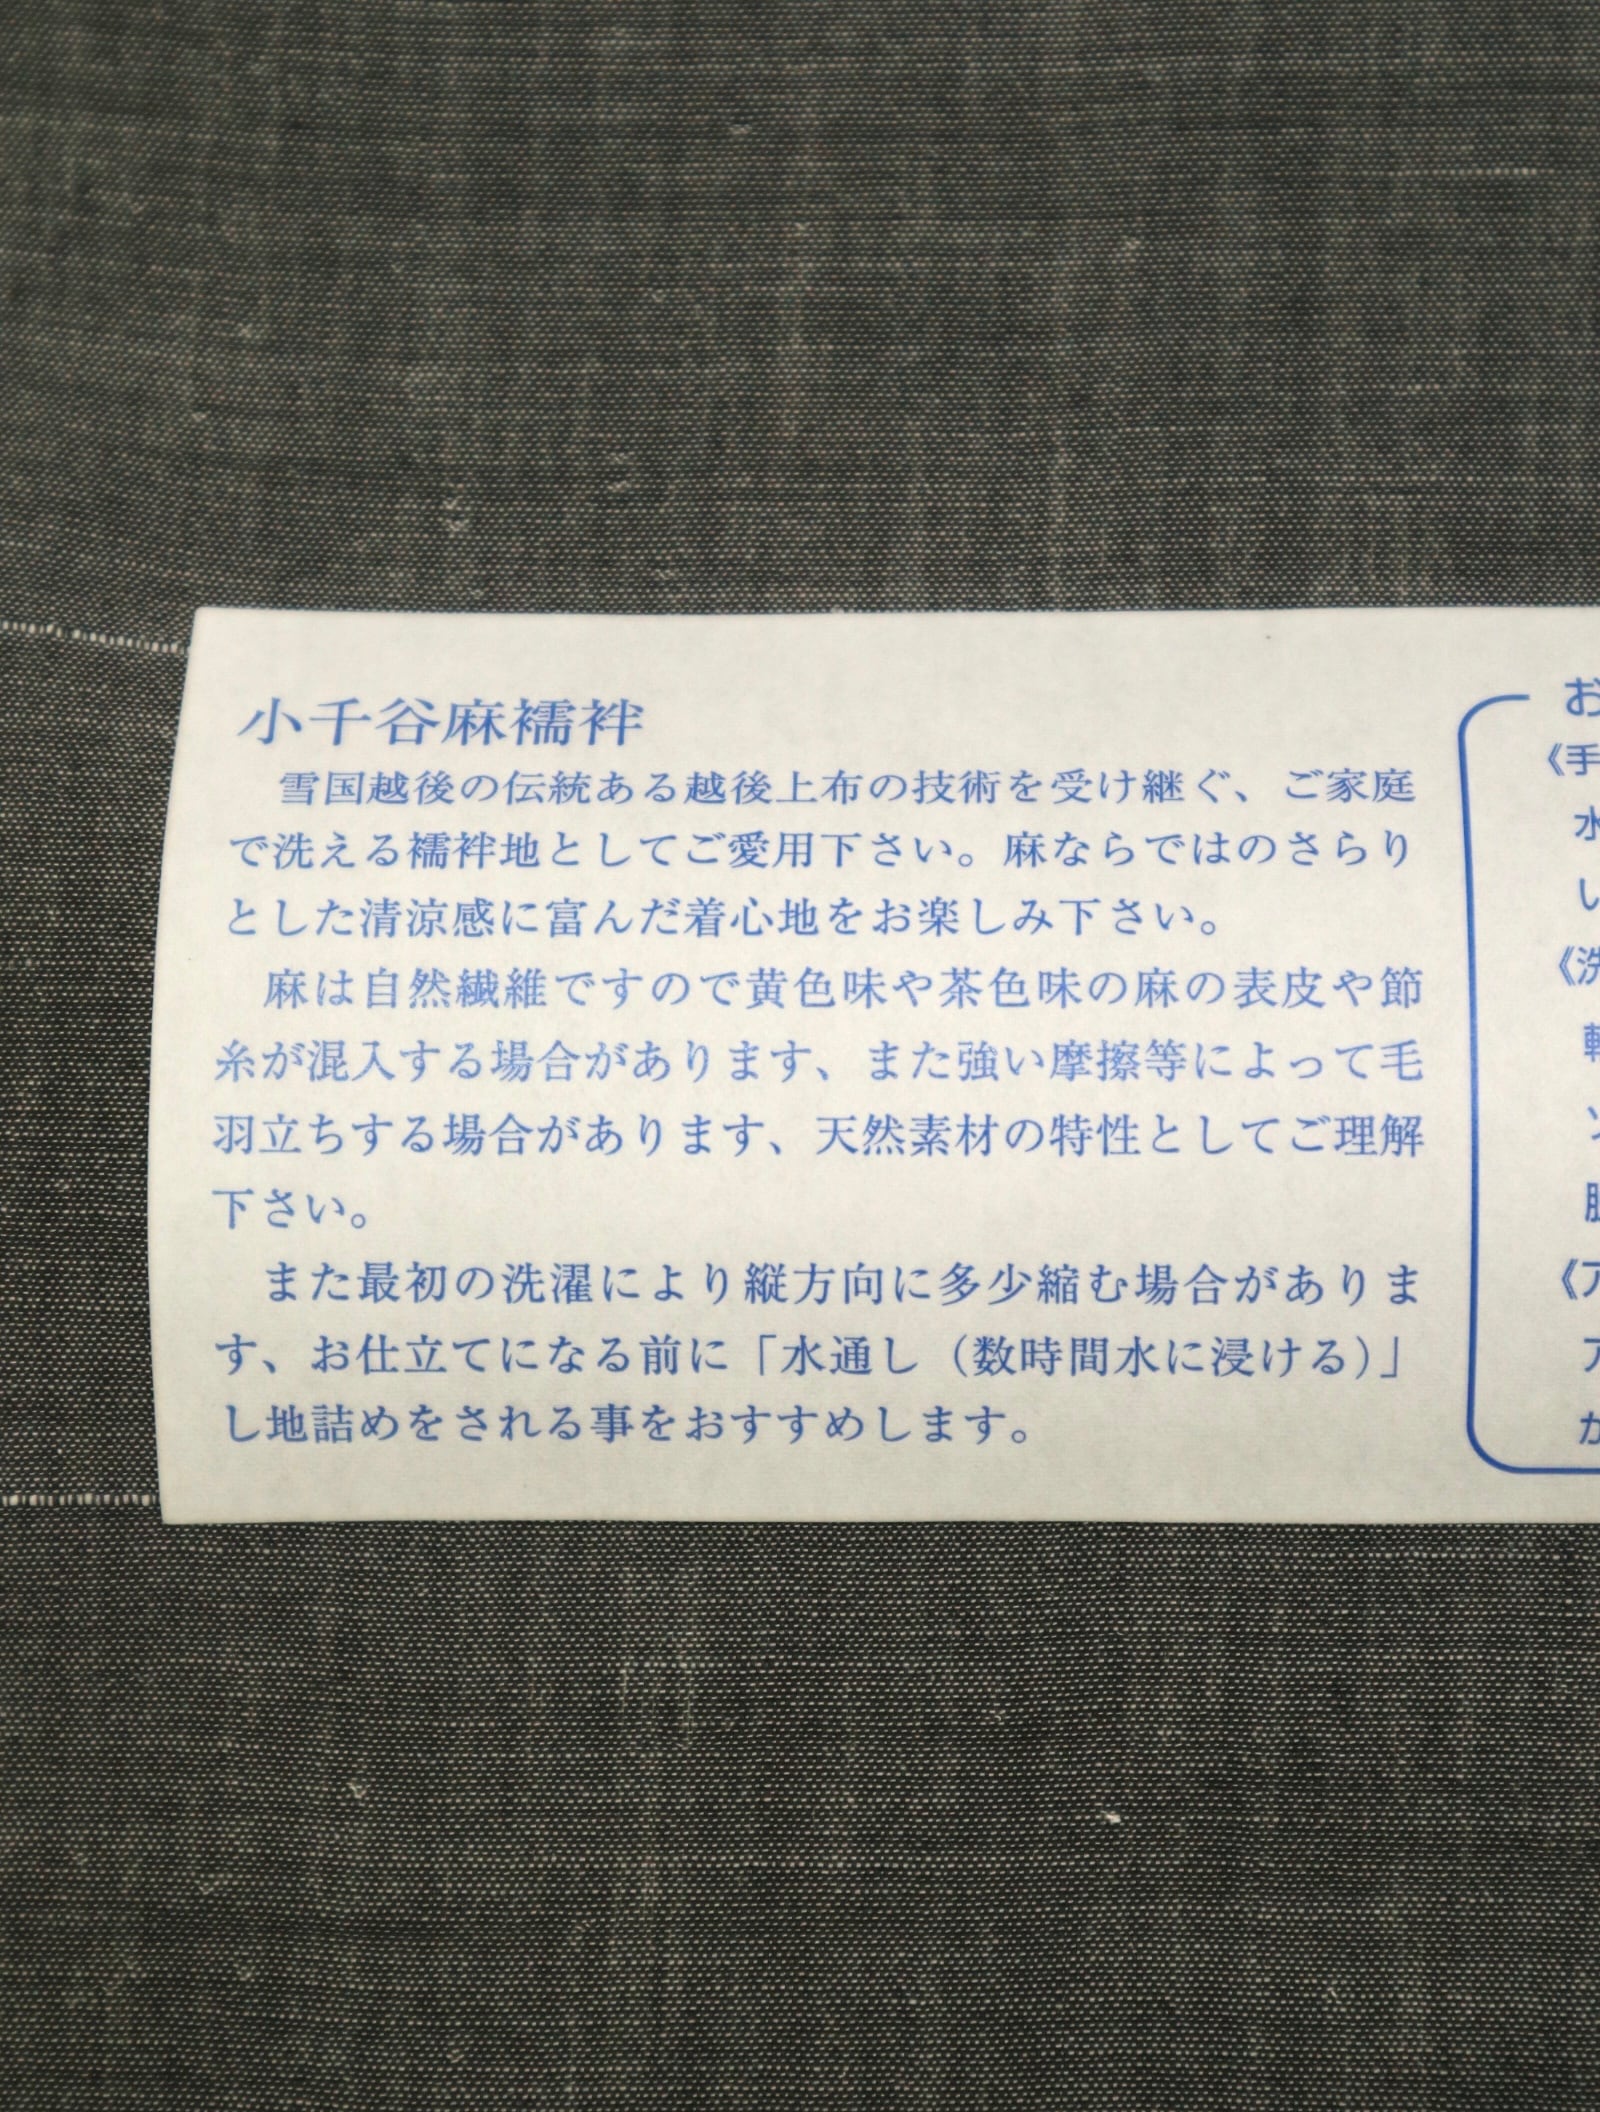 小千谷麻襦袢
雪国越後の伝統ある越後上布の技術を受け継ぐ、ご家庭
で洗える襦袢地としてご愛用下さい。麻ならではのさらり
とした清涼感に富んだ着心地をお楽しみ下さい。
麻は自然繊維ですので黄色味や茶色味の麻の表皮や節
糸が混入する場合があります、また強い摩擦等によって毛
羽立ちする場合があります、天然素材の特性としてご理解
下さい。
また最初の洗濯により縦方向に多少縮む場合がありま
す、お仕立てになる前に「水通し（数時間水に浸ける）」
し地詰めをされる事をおすすめします。
お
《手
水
い
《洗
ン
《ア
ア
か